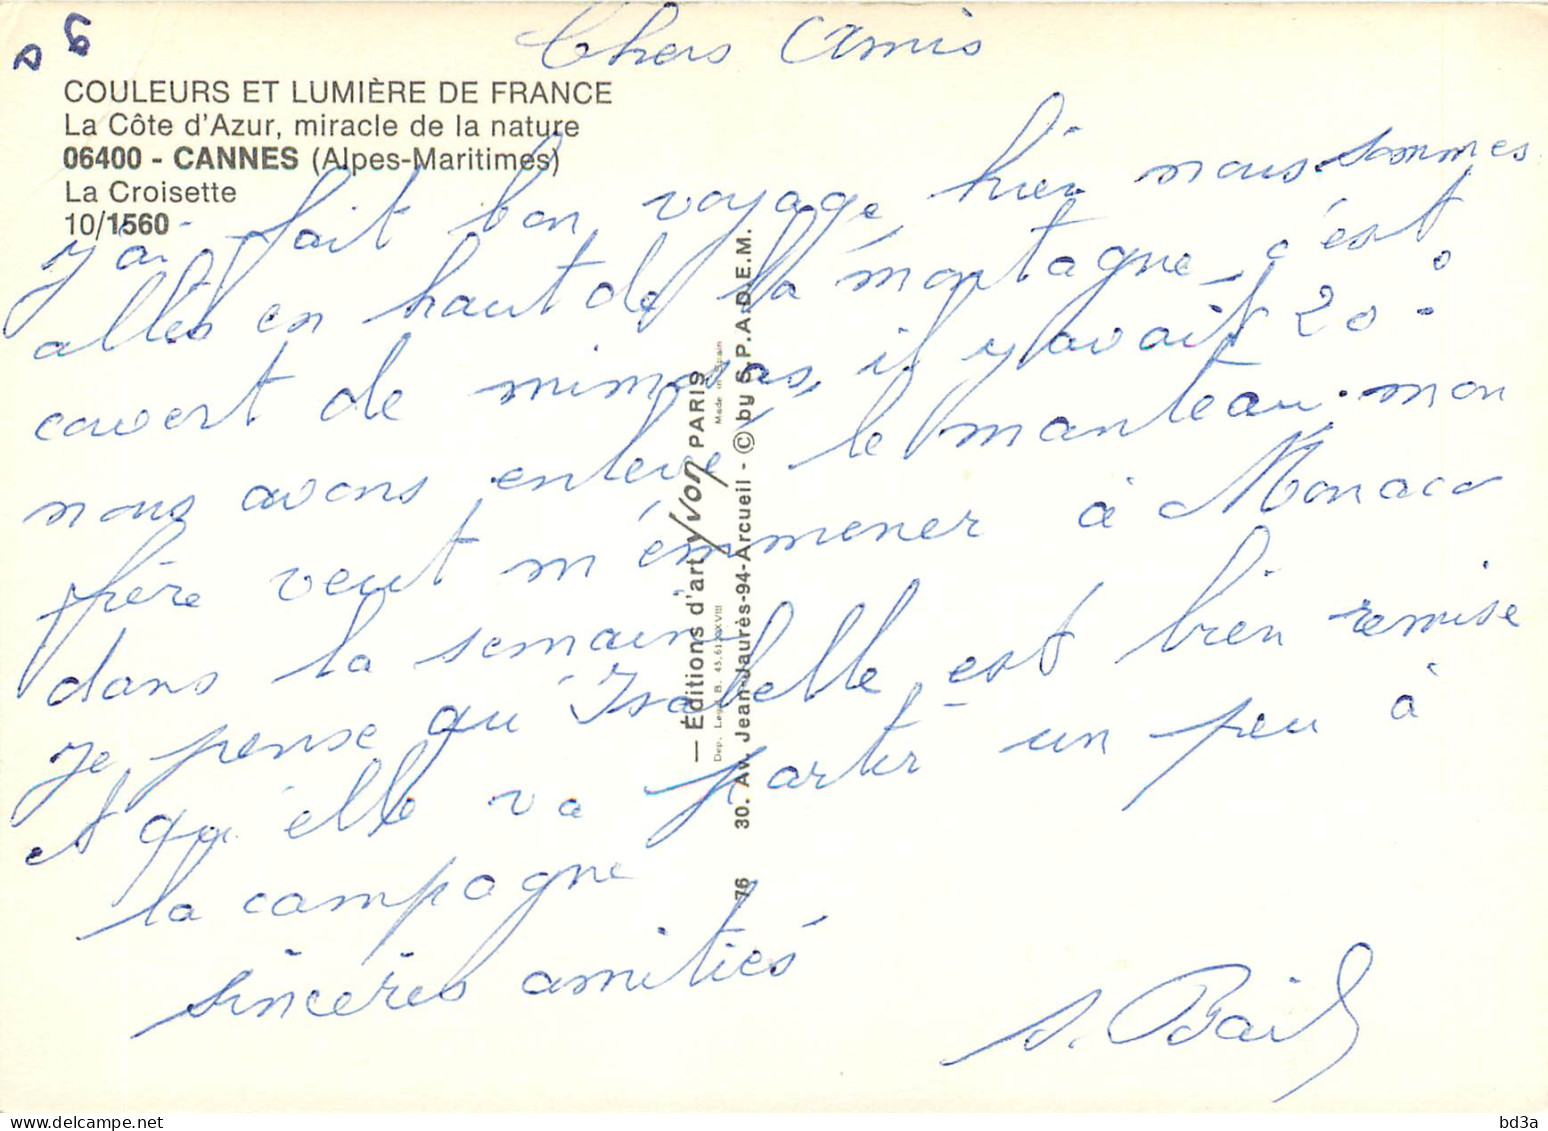 Chers Amis
COULEURS ET LUMIÈRE DE FRANCE
La Côte d'Azur, miracle de la nature
06400 - CANNES (Alpes-Maritimes)
La Croisette
10/1560
j'ai fait bon voyage, hier nous sommes
allés en haut de la montagne, c'est
couvert de mimosas, il y avait 20°
nous avons enlevé le manteau. mon
frère veut m'emmener à Monaco
dans la semaine
je pense qu'Isabelle est bien remise
et qu'elle va partir un peu à
la campagne
sincères amitiés
— Éditions d'art yvon PARIS
Made in Spain
Dep. Legal B.
30. Av. Jean-Jaurès-94-Arcueil - © by S.P.A.D.E.M.
76
bd3a